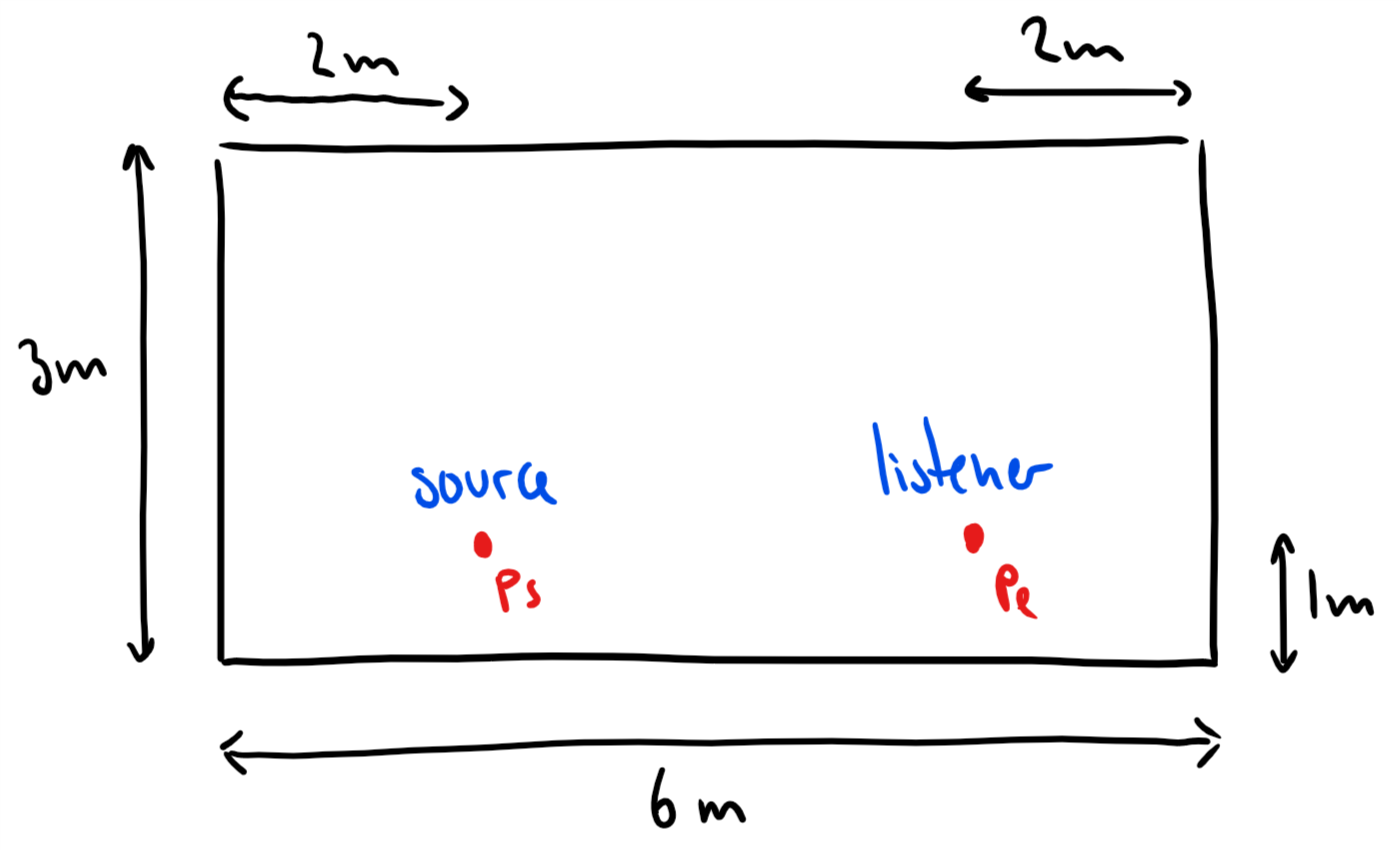 2m
2m
3m
source
listener
Ps
Pe
1m
6m